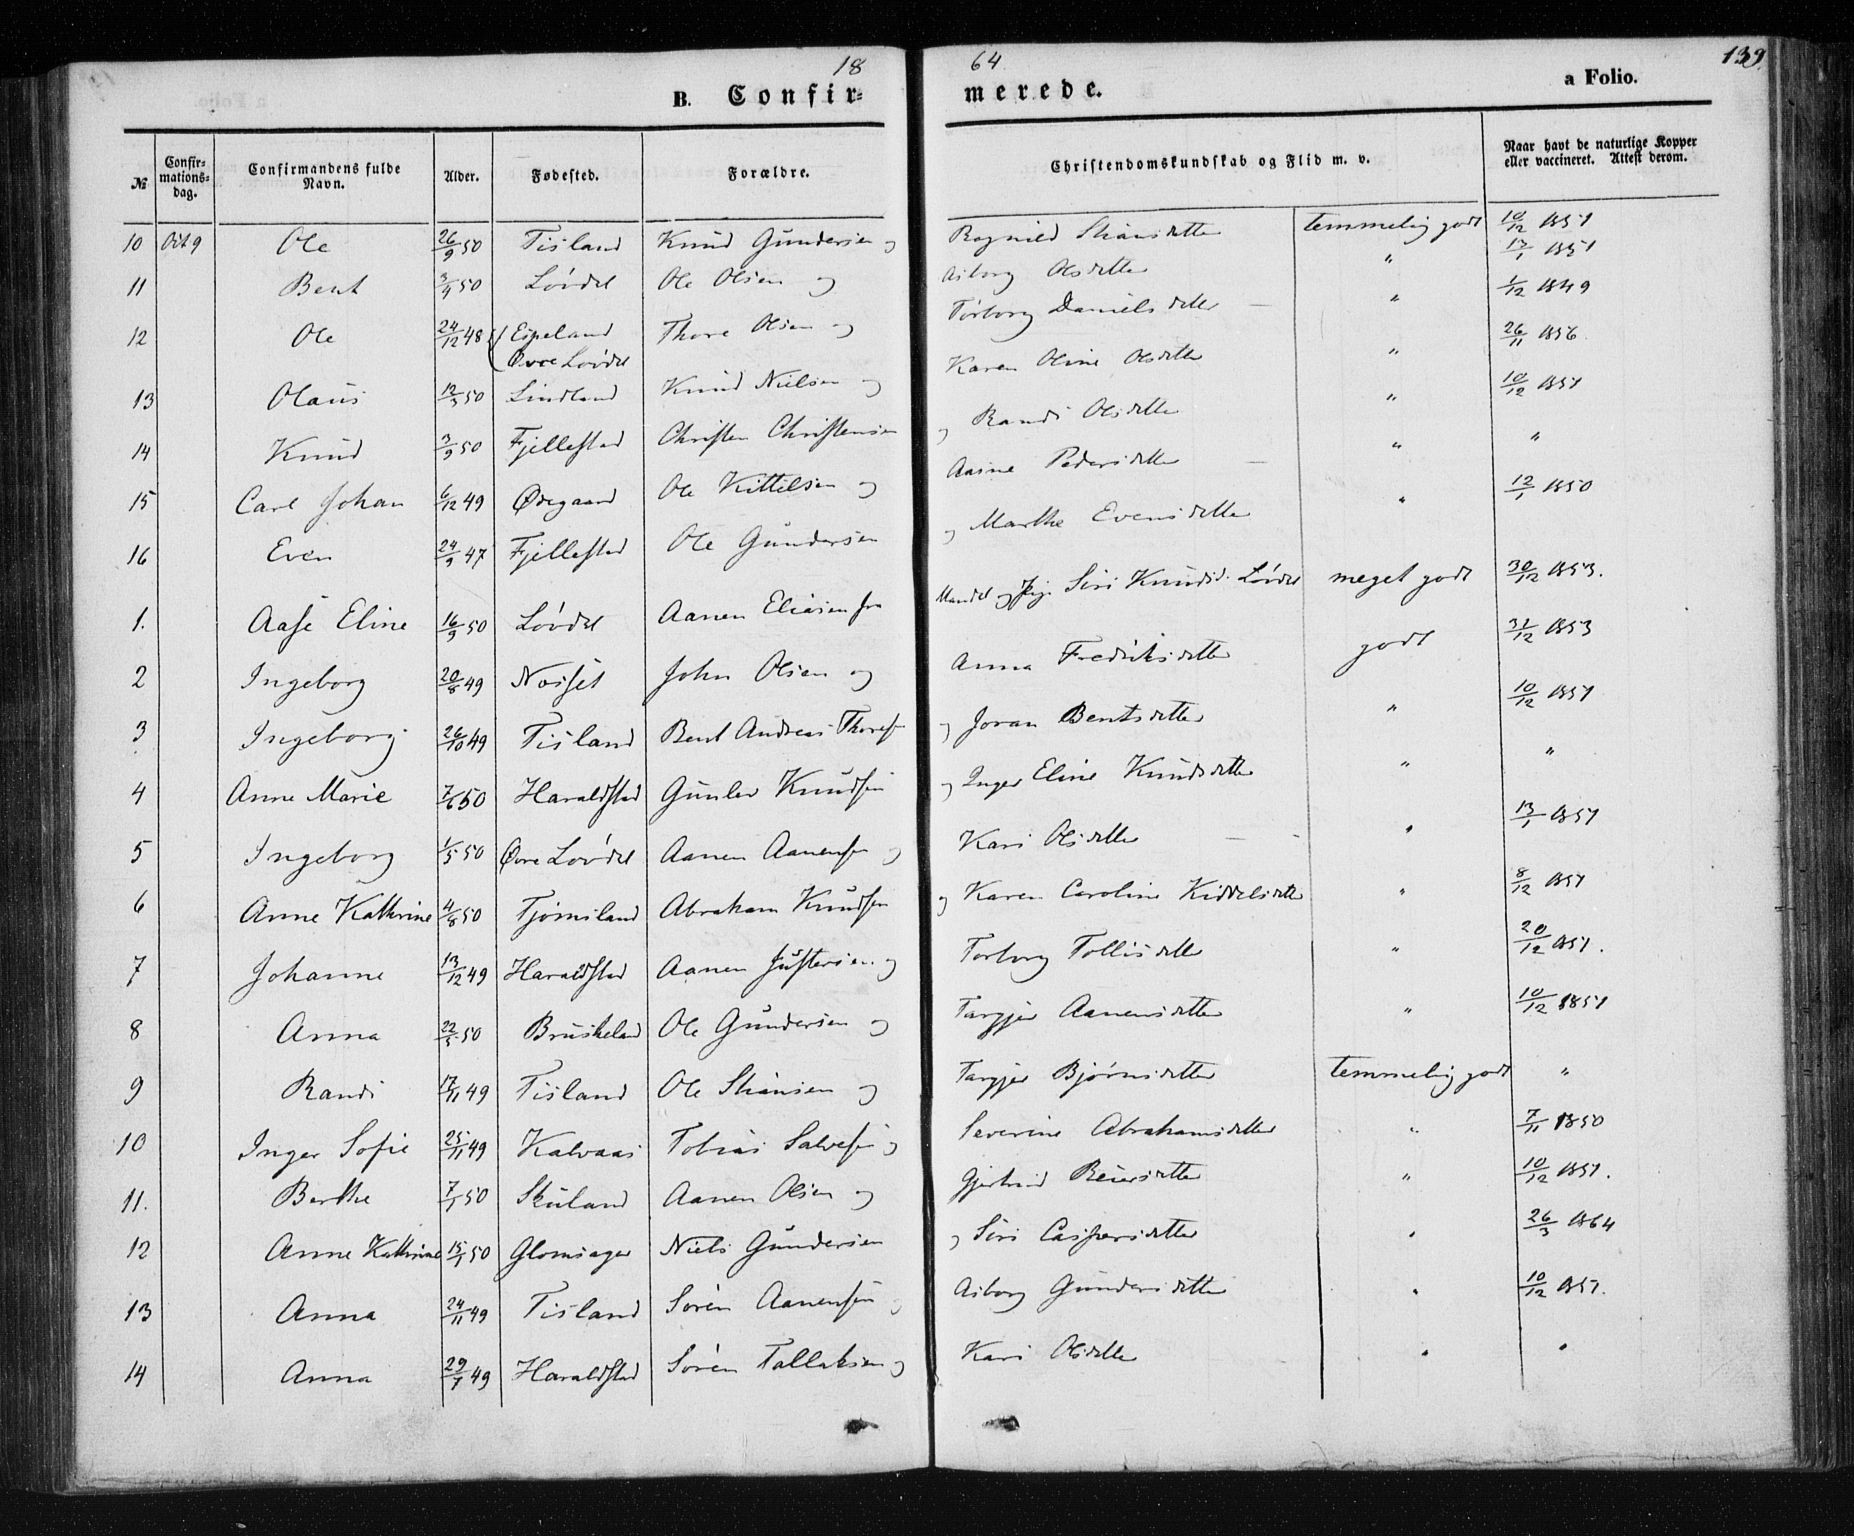 18 64 139
B. Confir- merede. a Folio.
№ Confir-mations-dag. Confirmandens fulde Navn. Alder. Fødested. Forældre. Christendomskundskab og Flid m. v. Naar havt de naturlige Kopper eller vaccineret. Attest derom.
10 Oct 9 Ole 26/9 50 Tisland Knud Gundersen og Ragnild Stiansdatter temmelig godt 10/12 1851
11 Bent 3/4 50 Lövdal Ole Olsen og Asborg Olsdatter " 13/1 1851
12 Ole 24/12 48 Eipeland Øvre Lövdal Thore Olsen og Torborg Danielsdatter — " 1/12 1849
13 Olaus 12/3 50 Lindland Knud Nielsen og Karen Oline Olsdatter " 26/11 1856
14 Knud 3/9 50 Fjellestad Christen Christensen og Randi Olsdatter " 10/12 1851
15 Carl Johan 6/12 49 Ødegaard Ole Kittelsen og Aasine Pedersdatter — " "
16 Even 24/9 47 Fjellestad Ole Gundersen og Marthe Evensdatter " 12/1 1850
1. Aase Eline 16/9 50 Lövdal Aanen Eliasen fra Mandal og Pige Siri Knudsd. Lövdal meget godt 30/12 1853.
2 Ingeborg 20/8 49 John Olsen og Anna Fredriksdatter godt 31/12 1853
3 Ingeborg 26/10 49 Tisland Bent Andreas Thores. og Joran Bentsdatter " 10/12 1851
4 Anne Marie 7/6 50 Haraldstad Gunlev Knudsen og Inger Eline Knudsdatter " "
5 Ingeborg 1/5 50 Øvre Lövdal Aanen Aanensen og Kari Olsdatter — " 13/1 1851
6 Anne Kathrine 4/8 50 Tjömsland Abraham Knudsen og Karen Caroline Kiddelsdatter " 8/12 1851
7 Johanne 13/12 49 Haraldstad Aanen Justersen og Torborg Tollisdatter " 20/12 1851.
8 Anna 22/5 50 Bruskeland Ole Gundersen og Targjer Aanensdatter " 10/12 1851
9 Randi 17/11 49 Tisland Ole Stiansen og Targjer Bjørnsdatter temmelig godt "
10 Inger Sofie 25/11 49 Kalvaas Tobias Salvesen og Severine Abrahamsdatter " 7/11 1850
11. Berthe 7/1 50 Skuland Aanen Olsen og Gjertrud Reiersdatter " 10/12 1851.
12 Anne Kathrine 15/1 50 Glomsager Niels Gundersen og Siri Caspersdatter " 26/3 1864
13 Anna 24/11 49 Tisland Sören Aanensen og Asborg Gundersdatter " 10/12 1851.
14 Anna 29/7 49 Haraldstad Sören Tallaksen og Kari Olsdatter " "